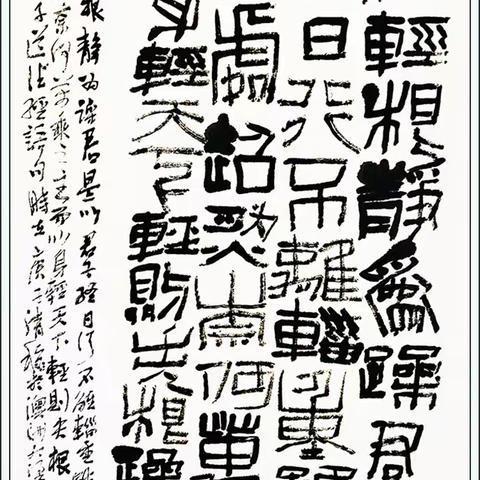 輕根靜為躁君
日行不離輜重雖
處超然柰何萬
身輕天下輕則失根躁
根靜為躁君是以君子終日行不離輜重雖
奈何萬乘之主而以身輕天下輕則失根
子道德經語句時在庚子清於澳洲